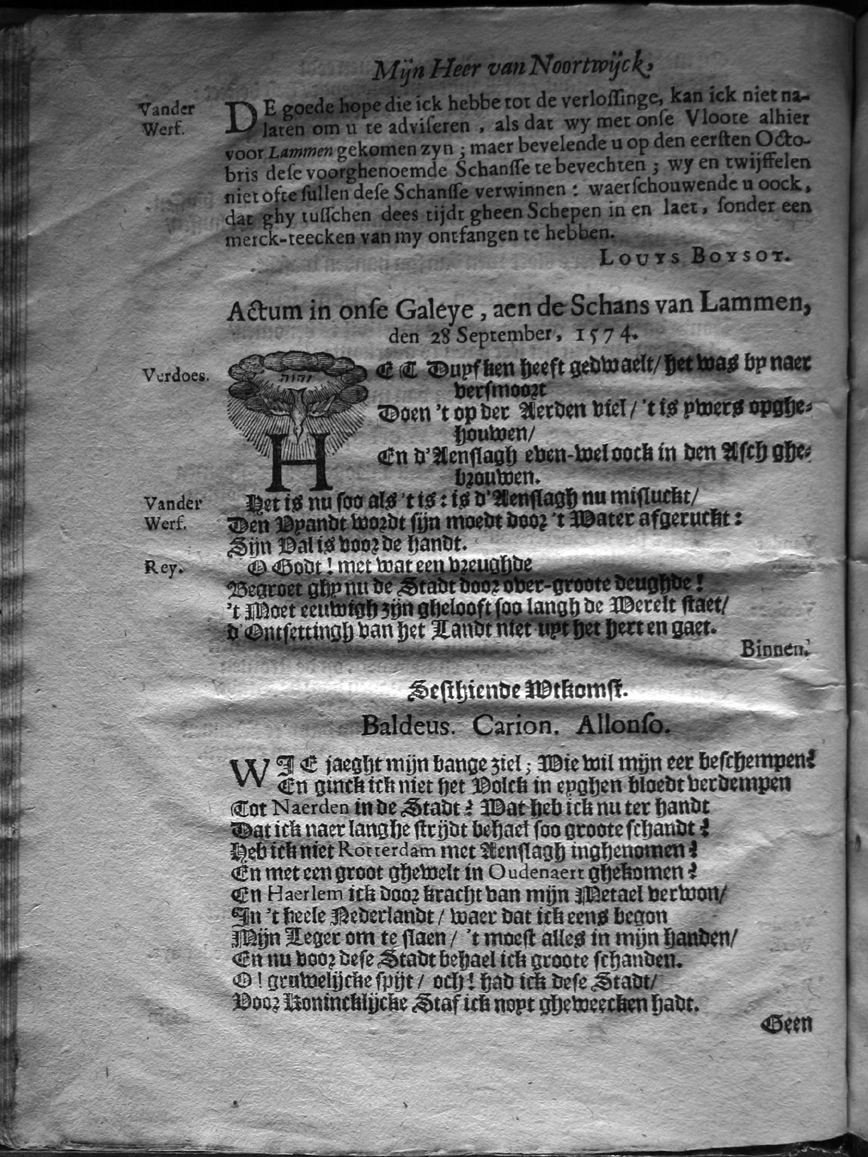 Mijn Heer van Noortwijck,
Vander Werf.
DE goede hope die ick hebbe tot de verlossinge, kan ick niet na-
laten om u te adviseren, als dat wy met onse Vloote alhier
voor Lammen gekomen zyn; maer bevelende u op den eersten Octo-
bris dese voorghenoemde Schansse te bevechten; wy en twijffelen
niet ofte sullen dese Schansse verwinnen: waerschouwende u oock,
dat ghy tusschen dees tijdt gheen Schepen in en laet, sonder een
merck-teecken van my ontfangen te hebben.
LOUYS BOYSOT.
Actum in onse Galeye, aen de Schans van Lammen,
den 28 September, 1574.
Verdoes.
יהוה
HET Duyfken heeft gedwaelt/ het was by naer
versmoort
Doen 't op der Aerden viel/ 't is ywers opghe-
houwen/
En d'Aenslagh even-wel oock in den Asch ghe-
brouwen.
Vander Werf.
Het is nu soo als 't is: is d'Aenslagh nu misluckt/
Den Vyandt wordt sijn moedt door 't Water afgeruckt:
Sijn Val is voor de handt.
Rey.
O Godt! met wat een vreughde
Begroet ghy nu de Stadt door over-groote deughde!
't Moet eeuwigh zijn ghelooft soo langh de Werelt staet/
d'Ontsettingh van het Landt niet uyt het hert en gaet.
Binnen.
Sesthiende Wtkomst.
Baldeus. Carion. Allonso.
WIE jaeght mijn bange ziel; Wie wil mijn eer beschempen?
En ginck ick niet het Volck in eyghen bloedt verdempen
Tot Naerden in de Stadt? Wat heb ick nu ter handt
Dat ick naer langhe strijdt behael soo groote schandt?
Heb ick niet Rotterdam met Aenslagh inghenomen?
En met een groot ghewelt in Oudenaert ghekomen?
En Haerlem ick door kracht van mijn Metael verwon/
In 't heele Nederlandt/ waer dat ick eens begon
Mijn Leger om te slaen/ 't moest alles in mijn handen/
En nu voor dese Stadt behael ick groote schanden.
O! gruwelijcke spijt/ och! had ick dese Stadt/
Voor Konincklijcke Staf ick noyt gheweecken hadt.
Geen